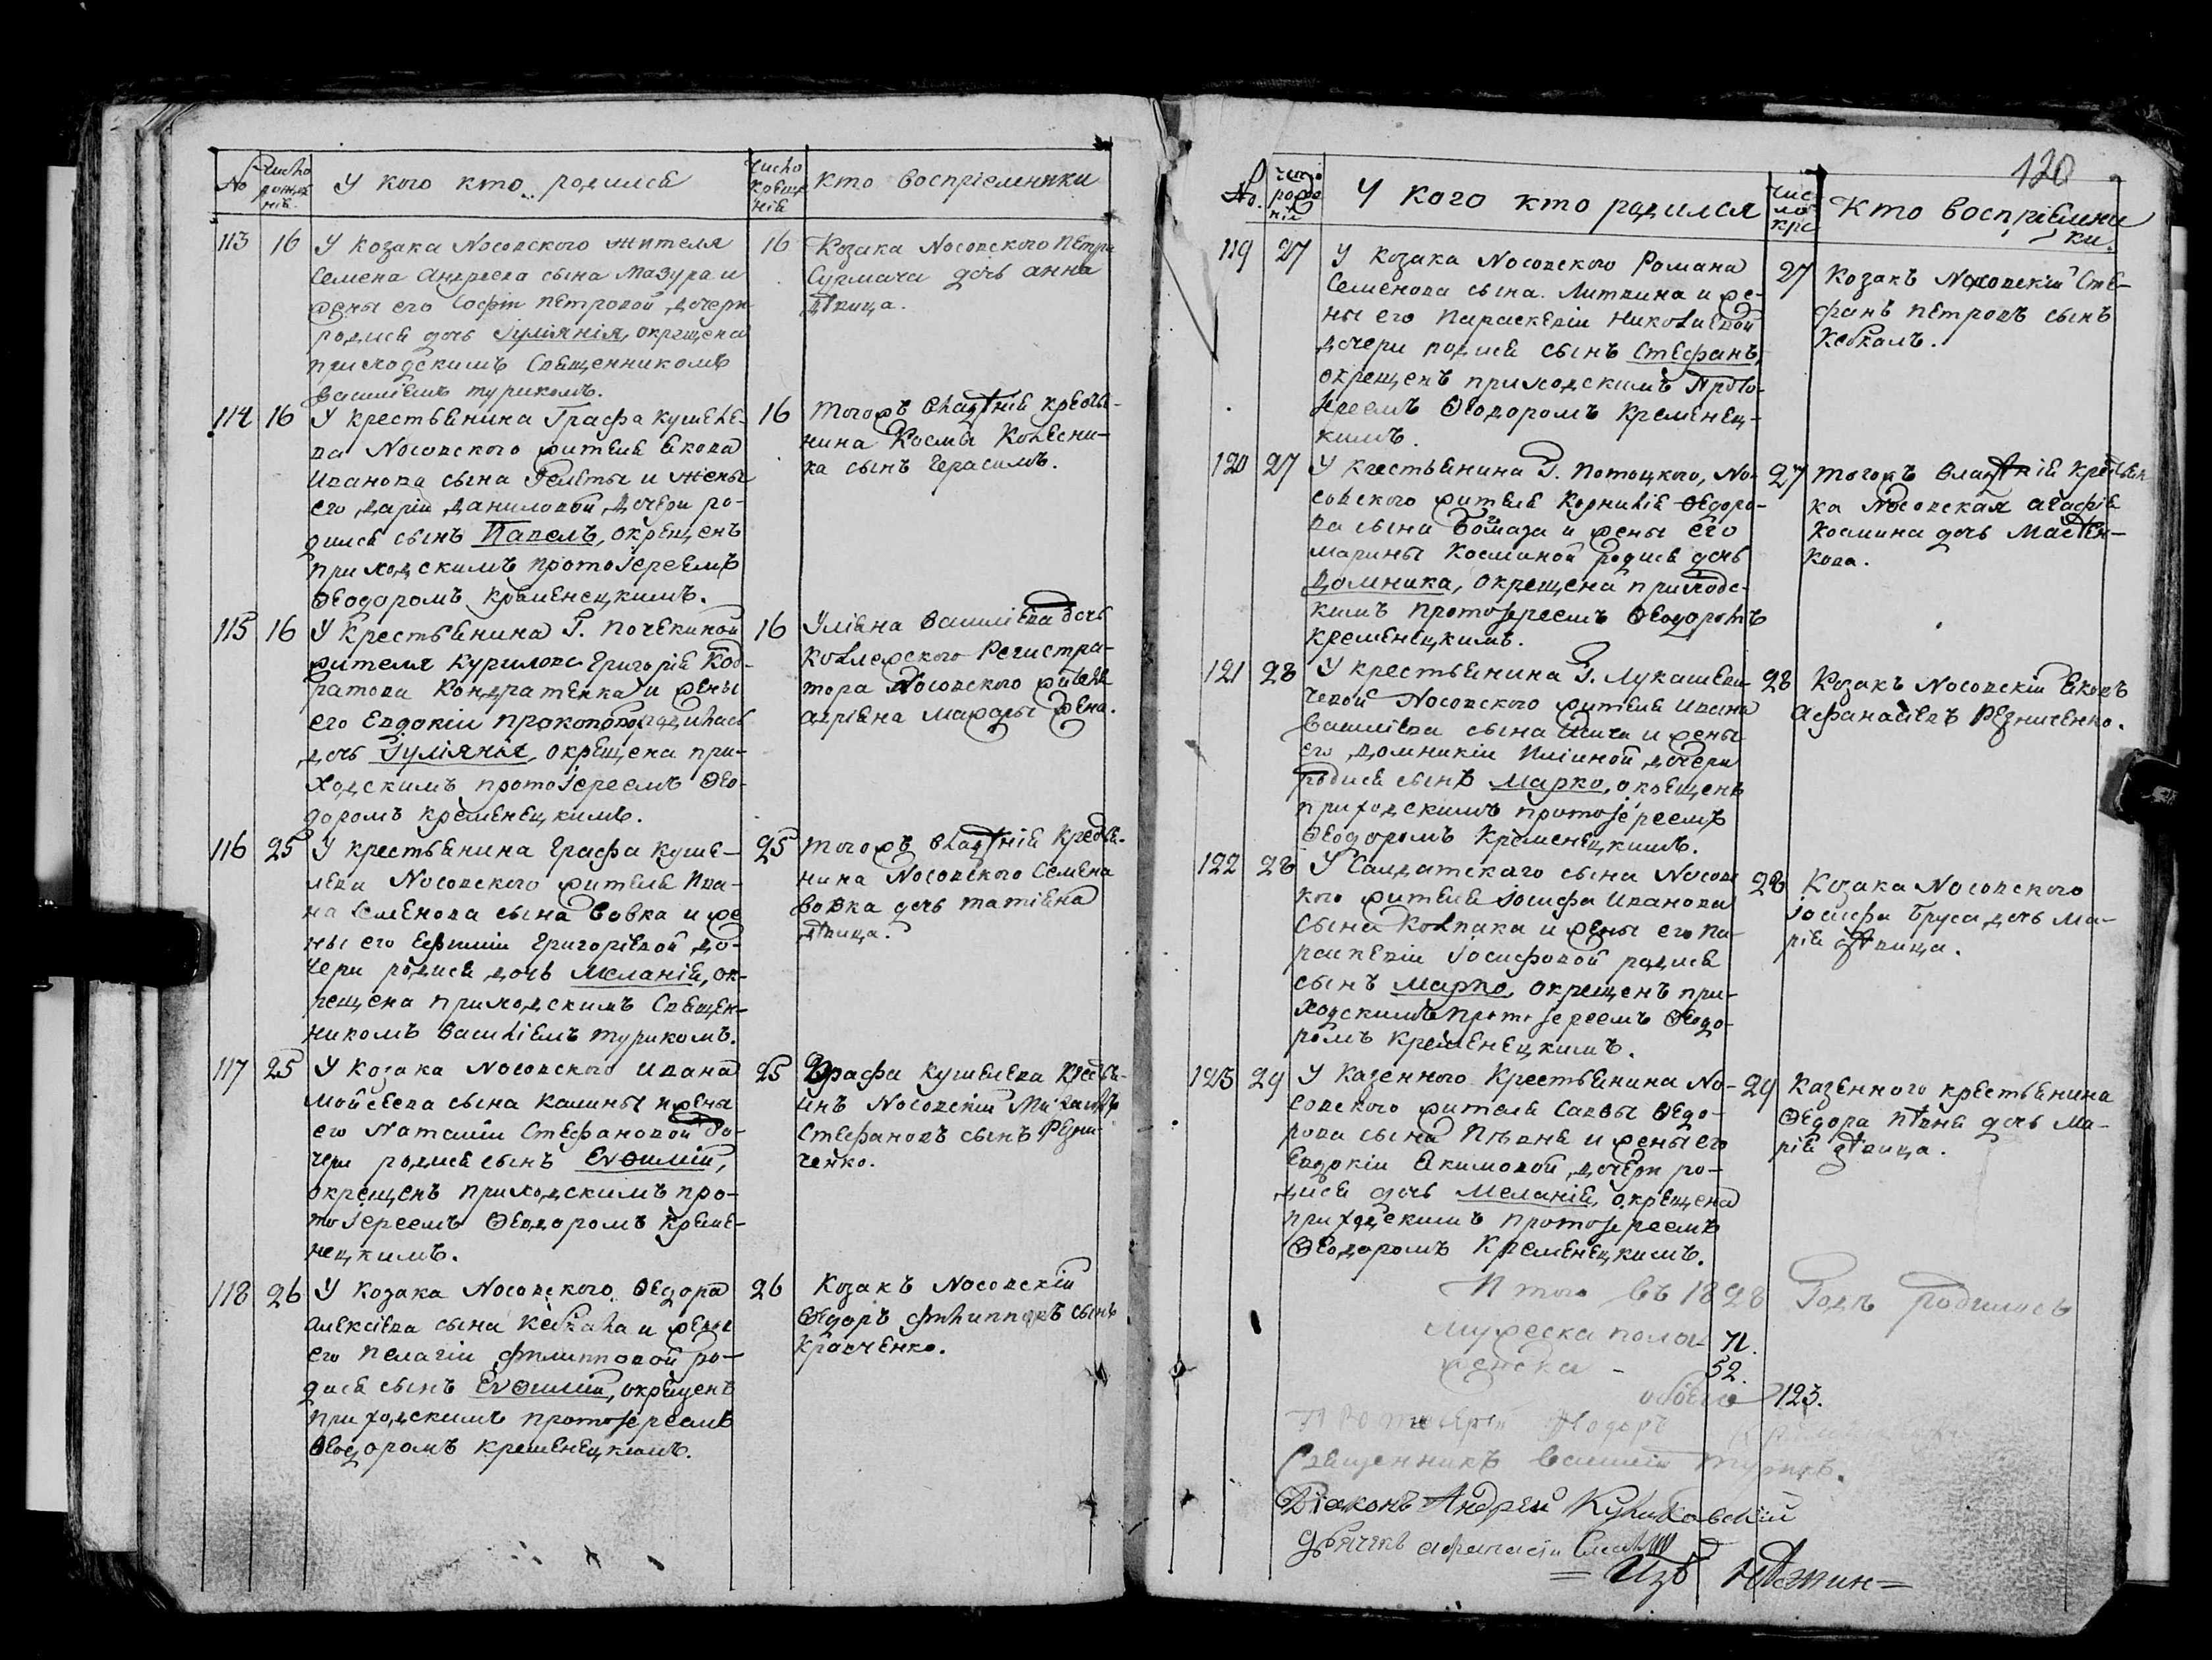 № Число рожденія У кого кто родился Число крещенія Кто воспріемники
113 16 У козака Носовского жителя
Семена Андреева сына Мазура и
жены его Софіи Петровой дочери
родися дочь Іуліянія, окрещена
приходскимъ Священникомъ
Василіемъ Турикомъ.
16 Козака Носовского Петра
Сурмача дочь Анна
дѣвица.
114 16 У крестьянина Графа Кушеле-
ва Носовского жителя Якова
Иванова сына и жены
его Даріи Даниловой дочери ро-
дися сынъ Павелъ, окрещенъ
приходскимъ протоіереемъ
Ѳеодоромъ Кременецкимъ.
16 Тогожъ владѣнія крестья-
нина Космы Колесни-
ка сынъ Герасимъ.
115 16 У крестьянина Г. Почекиной
жителя Курилова Григорія Код-
ратова Кондратенка и жены
его Евдокіи Прокоповой родилась
дочь Іуліянія, окрещена при-
ходскимъ протоіереемъ Ѳео-
доромъ Кременецкимъ.
16 Уліяна Василіева дочь
Коллежского Регистра-
тора Носовского жителя
жена.
116 25 У крестьянина Графа Куше-
лева Носовского жителя Ива-
на Семенова сына Вовка и же
ны его Ефиміи Григоріевой до-
чери родися дочь Меланія, ок-
рещена приходскимъ Священ-
никомъ Василіемъ Турикомъ.
25 Тогожъ владѣнія крестья-
нина Носовского Семена
Вовка дочь Татіяна
дѣвица.
117 25 У козака Носовского Ивана
Мойсеева сына Калины и жены
его Наталіи Стефановой до-
чери родися сынъ Евѳимій,
окрещенъ приходскимъ про-
тоіереемъ Ѳеодоромъ Креме-
нецкимъ.
25 Графа Кушелева крестья-
инъ Носовскій Михаилъ
Стефановъ сынъ Резни-
ченко.
118 26 У козака Носовского Ѳедора
Алексіева сына Кебкала и жены
его Пелагіи Филипповой ро-
дися сынъ Евѳимій, окрещенъ
приходскимъ протоіереемъ
Ѳеодоромъ Кременецкимъ.
26 Козакъ Носовскій
Ѳедоръ Филипповъ сынъ
Кравченко.
120
№. число рожденія У кого кто родился число кре Кто воспріемни
ки.
119 27 У козака Носовского Романа
Семенова сына Литвина и же-
ны его Параскевіи Николаевой
дочери родися сынъ Стефанъ,
окрещенъ приходскимъ Прото-
іереемъ Ѳеодоромъ Кременец-
кимъ.
27 Козакъ Носовскій Сте-
фанъ Петровъ сынъ
Кебкалъ.
120 27 У крестьянина Г. Потоцкого, Но-
совского жителя Корнилія Ѳедоро-
ва сына и жены его
Марины Косминой родися дочь
Домника, окрещена приходс-
кимъ протоіереемъ Ѳеодоромъ
Кременецкимъ.
27 Тогожъ владѣнія крестьян
ка Носовская Агафія
Космина дочь
121 28 У крестьянина Г. Лукашеви-
чевой Носовского жителя Ивана
Василіева сына и жены
его Домникіи Иліиной дочери
родися сынъ Марко, окрещенъ
приходскимъ протоіереемъ
Ѳеодоромъ Кременецкимъ.
28 Козакъ Носовскій Яковъ
Афанасіевъ Резниченко.
122 28 У Салдатскаго сына Носовс
кого жителя Іосифа Иванова
сына Колпака и жены его Па-
раскевіи Іосифовой родися
сынъ Марко, окрещенъ при-
ходскимъ протоіереемъ Ѳеодо-
ромъ Кременецкимъ.
28 Козака Носовского
Іосифа Труса дочь Ма-
рія дѣвица.
123 29 У Казенного Крестьянина Но-
совского жителя Саввы Ѳедо-
рова сына Пѣвня и жены его
Евдокіи Якимовой дочери ро-
дися дочь Меланія, окрещена
приходскимъ протоіереемъ
Ѳеодоромъ Кременецкимъ.
29 Казенного крестьянина
Ѳедора Пѣвня дочь Ма-
рія дѣвица.
Итого въ 1828 Годѣ родилось
мужеска пола 71.
женска - 52.
обоего 123.
Протоіерей Ѳеодоръ
Священникъ Василій Турикъ.
Діаконъ Андрей Куликовскій
Дьячекъ Афанасій
= Изъ Нѣжин=